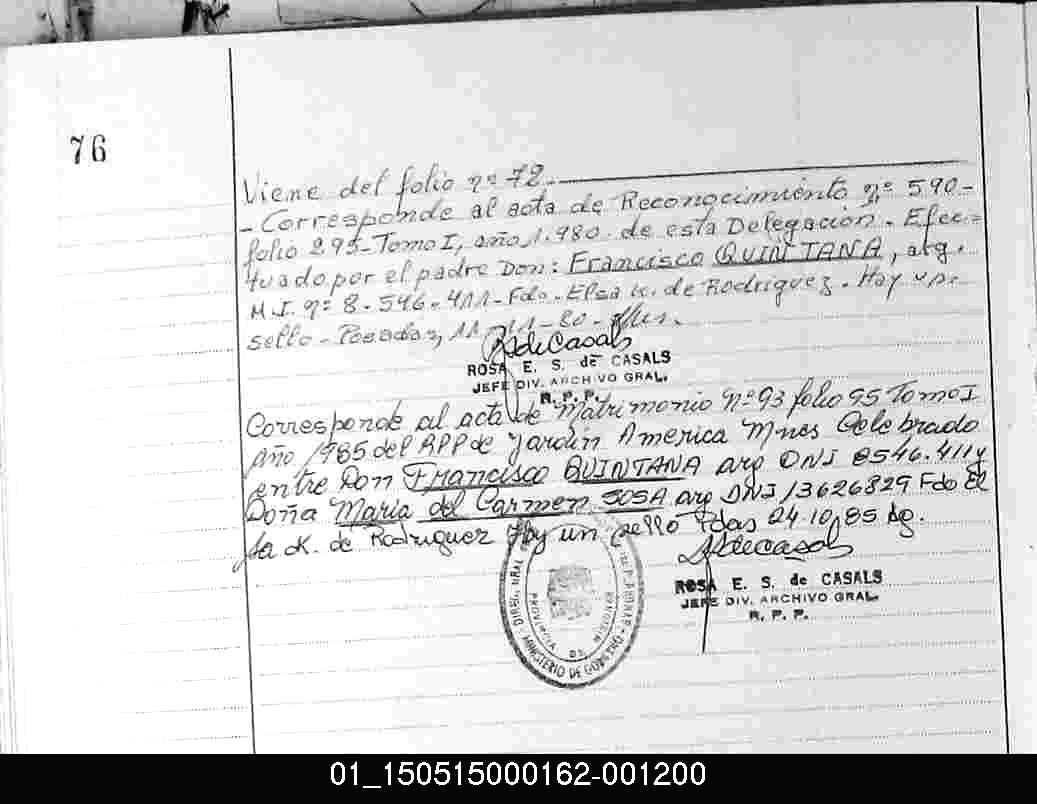 76
Viene del folio nº 72.
- Corresponde al acta de Reconocimiento nº 590-
folio 295-Tomo I, año 1.980. de esta Delegación. Efec=
tuado por el padre Don: Francisco QUINTANA, arg.
M.I. nº 8-546-411-Fdo. Elsa K. de Rodriguez. Hay un
sello- Posadas, 11-11-80-
ROSA E. S. de CASALS
JEFE DIV. ARCHIVO GRAL.
R. P. P.
Corresponde al acta de Matrimonio Nº 93 folio 95 Tomo I
año 1985 del RPP de Jardin America Mnes Celebrado
entre Don Francisco QUINTANA arg DNI 8546.411 y
Doña Maria del Carmen SOSA arg DNI 13626829 Fdo El
sa K. de Rodriguez Hay un sello Pdas 24.10.85
ROSA E. S. de CASALS
JEFE DIV. ARCHIVO GRAL.
R. P. P.
PROVINCIA DE MISIONES
MINISTERIO DE GOBIERNO
01_150515000162-001200